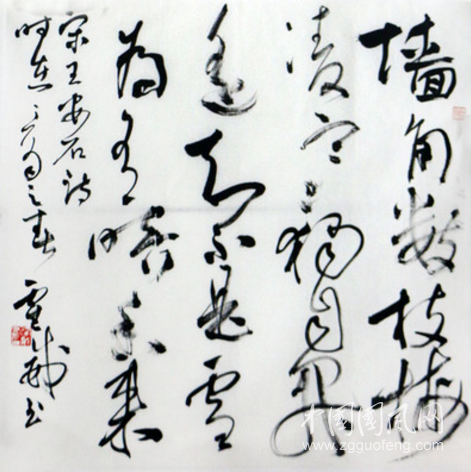 墙角数枝梅
凌寒独自开
遥知不是雪
为有暗香来
宋王安石诗
时在之春
书
中国国风网
www.zgguofeng.com